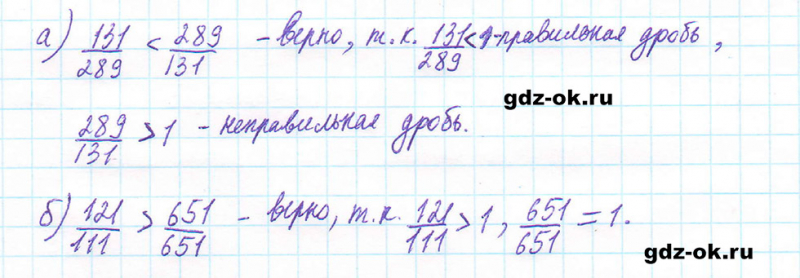 а) 131/289 < 289/131 - верно, т.к. 131/289 < 1 - правильная дробь,
gdz-ok.ru
289/131 > 1 - неправильная дробь.
б) 121/111 > 651/651 - верно, т.к. 121/111 > 1, 651/651 = 1.
gdz-ok.ru